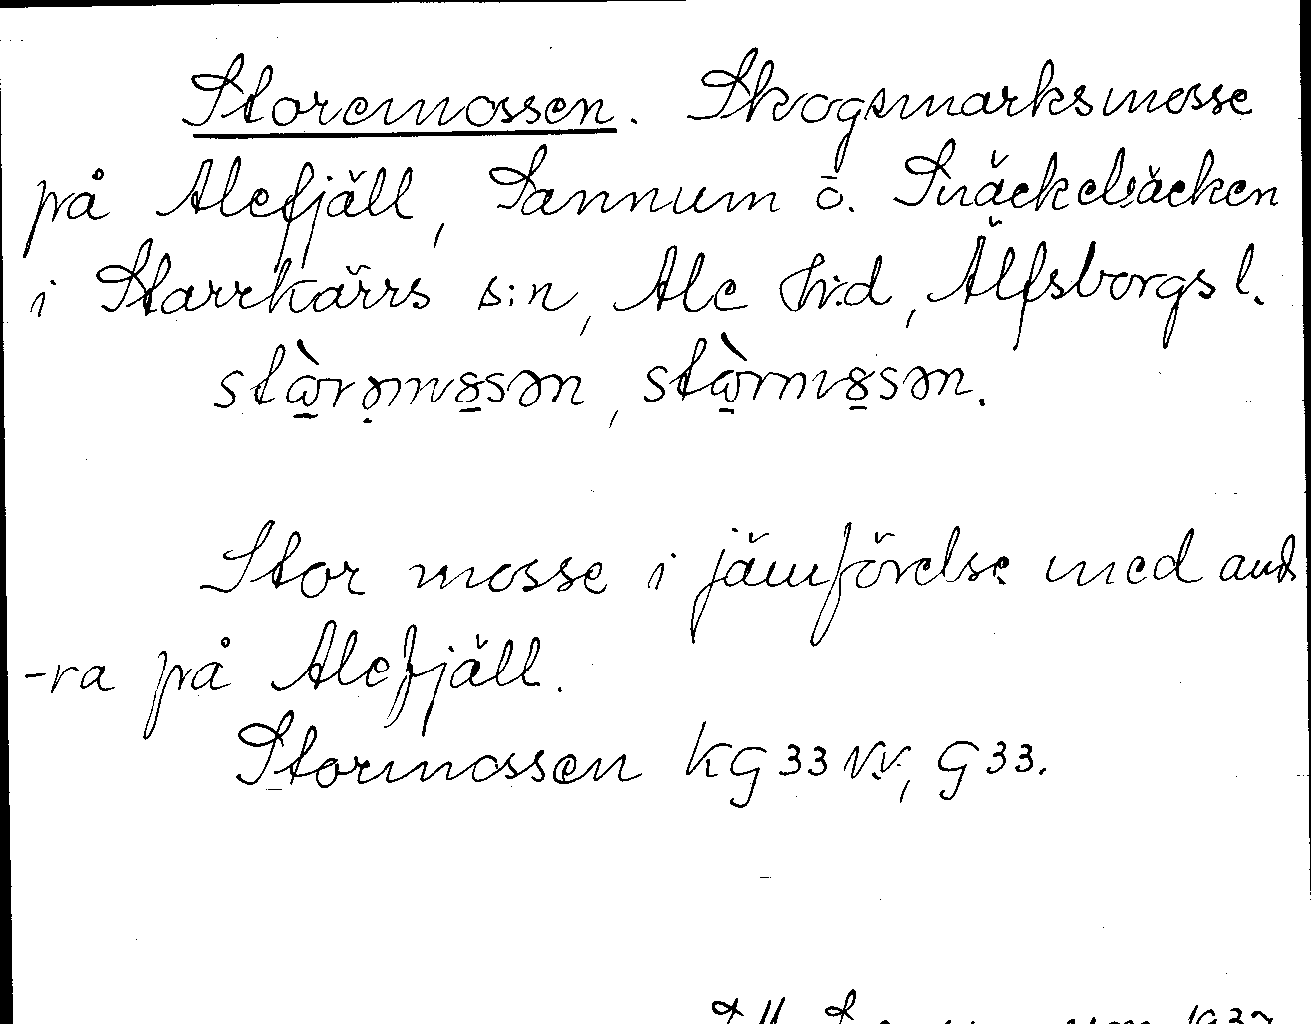 Storemossen. Skogsmarksmosse
på Alefjäll, Sannum o. Snäckelsäcken
i Starrkärrs s:n, Ale hr:d, Älfsborgs l.
stɷ̀rəmɞsən, stɷ̀rmɞsən.
Stor mosse i jämförelse med and
-ra på Alefjäll.
Stormossen KG 33 NV, G 33.
1937